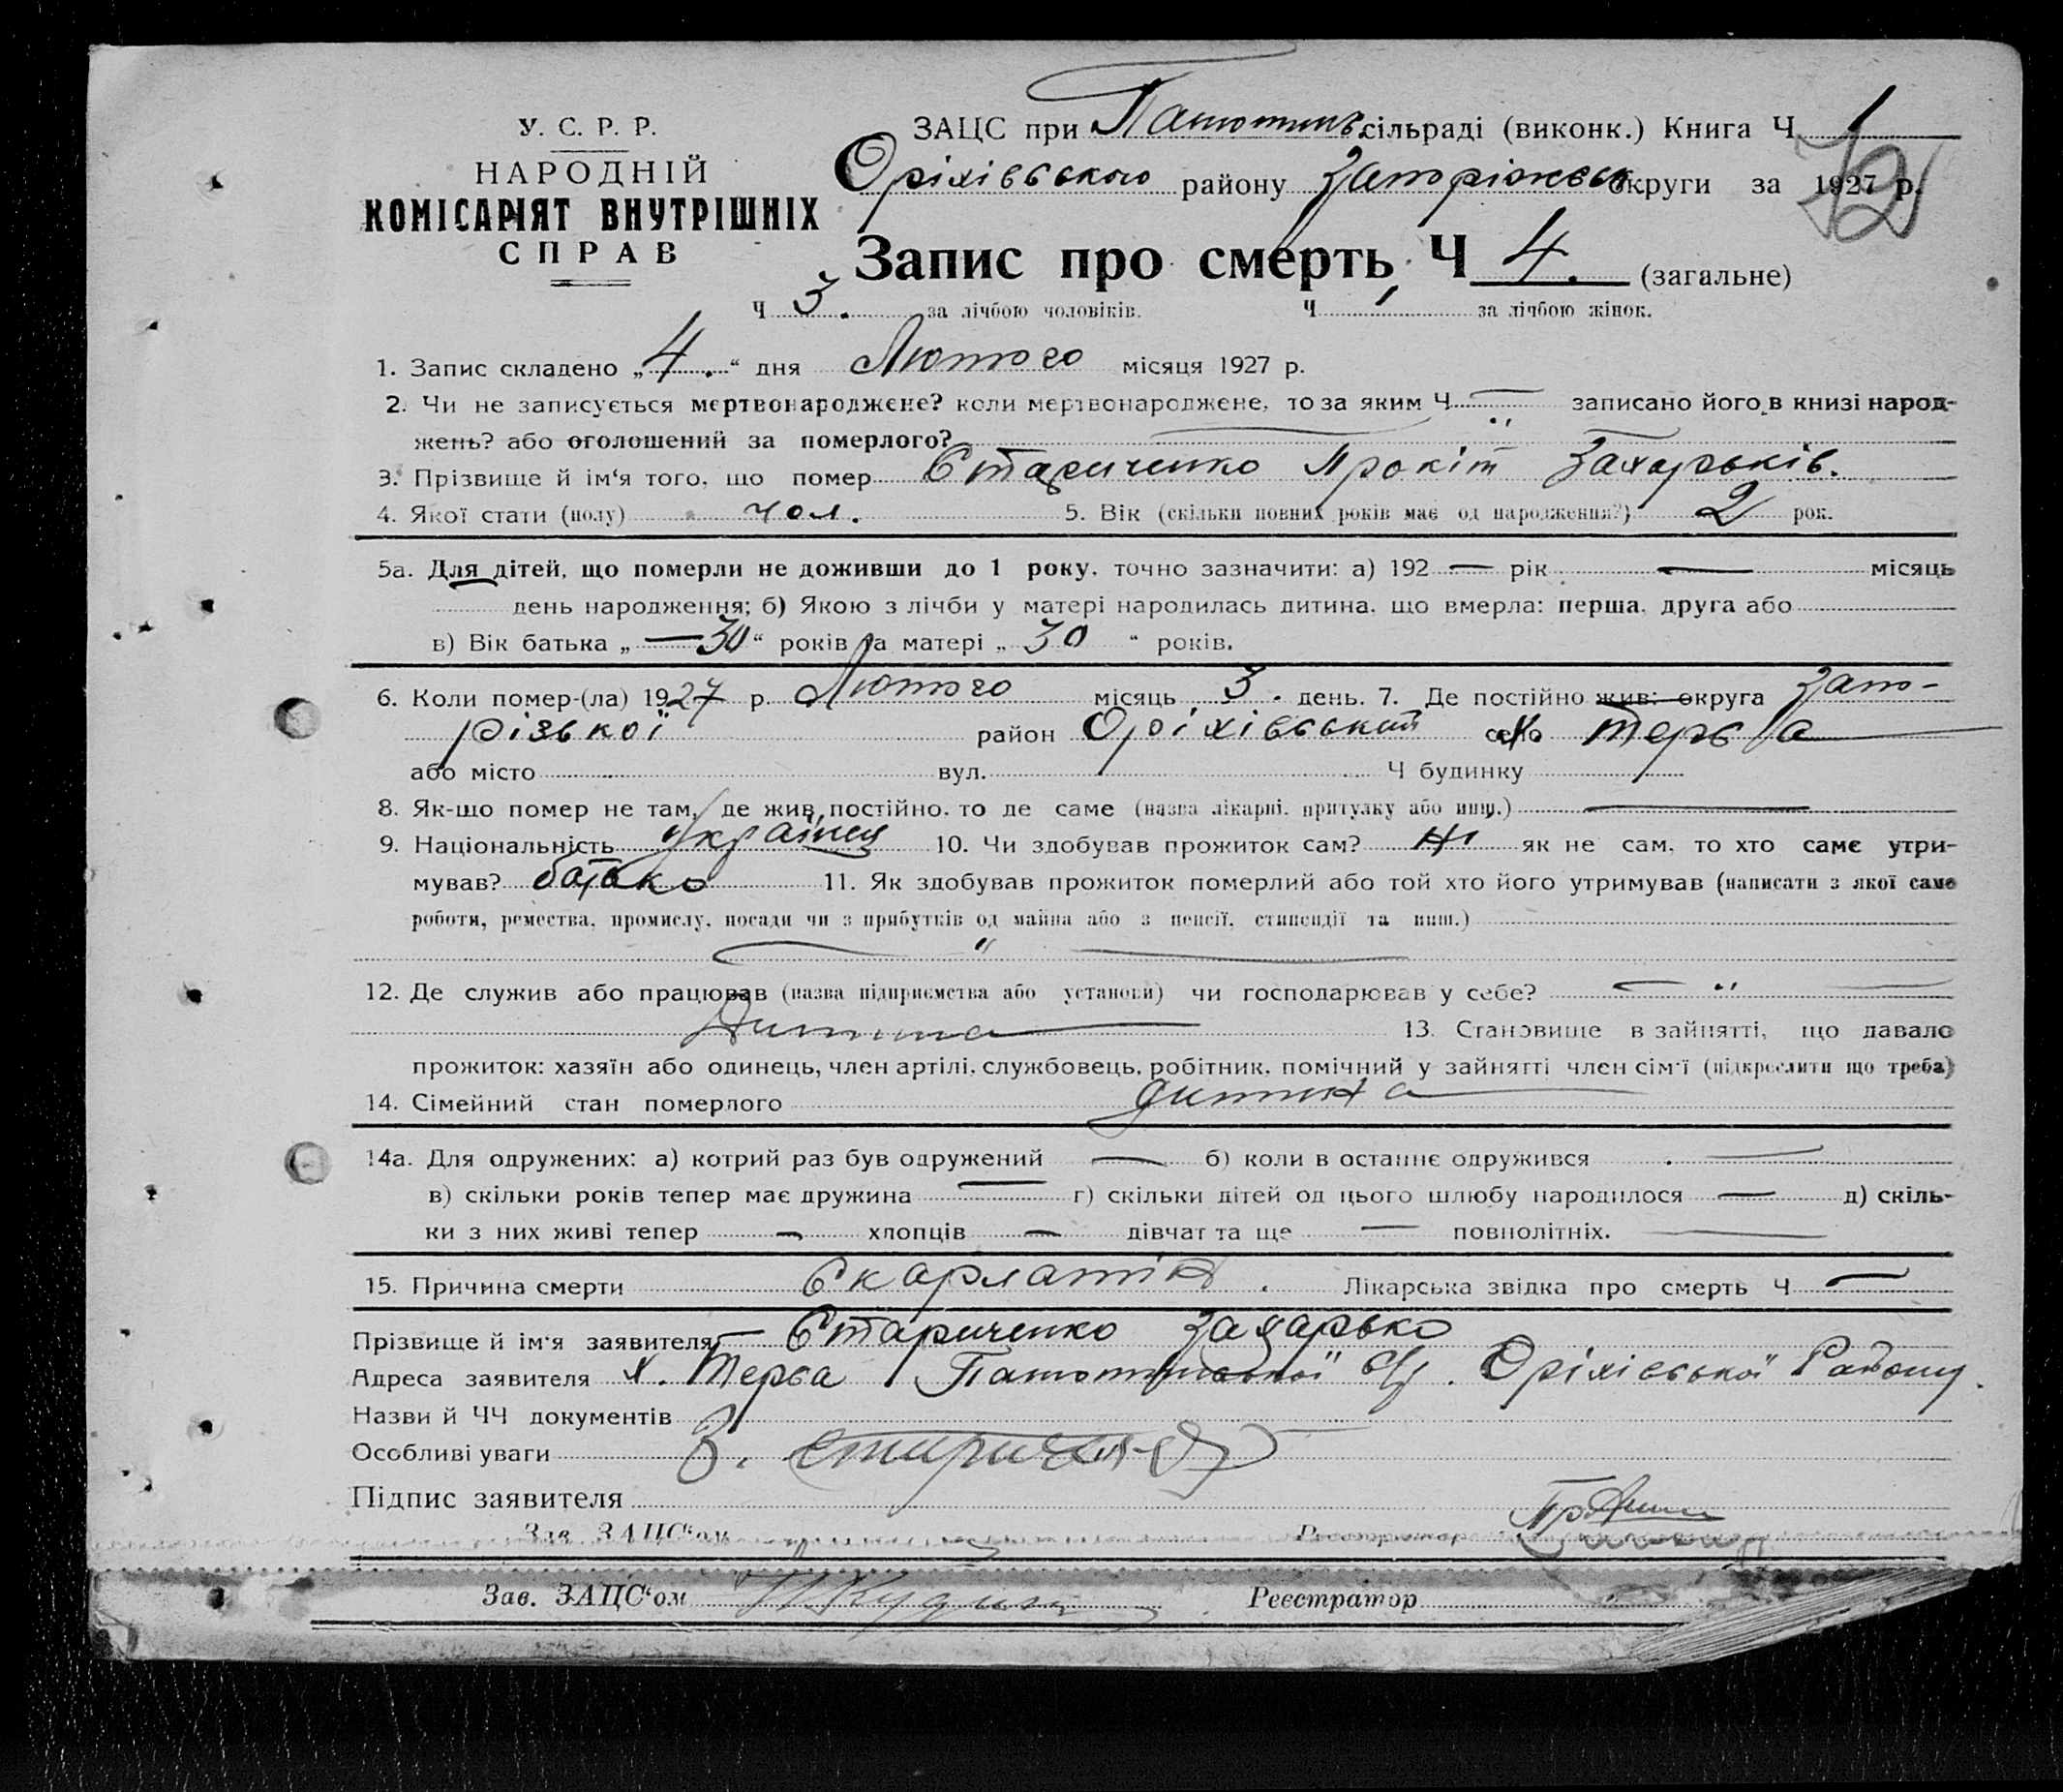 У. С. Р. Р.
НАРОДНІЙ
КОМІСАРІЯТ ВНУТРІШНІХ
СПРАВ
ЗАЦС при сільраді (виконк.) Книга Ч 1
Оріхівського району Запоріжськ округи за 1927 р.
121
Запис про смерть Ч 4. (загальне)
Ч 3. за лічбою чоловіків. Ч 1 за лічбою жінок.
1. Запис складено „4.“ дня Лютого місяця 1927 р.
2. Чи не записується мертвонароджене? коли мертвонароджене, то за яким Ч — записано його в книзі народ-
жень? або оголошений за померлого?
3. Прізвище й ім‘я того, що помер Стариченко Прокіп Захарьків.
4. Якої стати (полу) чол. 5. Вік (скільки повних років має од народження?) 2 рок.
5а. Для дітей, що померли не доживши до 1 року, точно зазначити: а) 192 — рік — місяць
день народження; б) Якою з лічби у матері народилась дитина, що вмерла: перша, друга або
в) Вік батька „—30“ років та матері „30“ років.
6. Коли помер-(ла) 1927 р. Лютого місяць 3. день. 7. Де постійно жив: округа Запо-
різької район Оріхівський село х. Терса
або місто вул. Ч будинку
8. Як-що помер не там, де жив постійно, то де саме (назва лікарні, притулку або инш.) —
9. Національність українец 10. Чи здобував прожиток сам? ні як не сам, то хто саме утри-
мував? батько 11. Як здобував прожиток померлий або той хто його утримував (написати з якої саме
роботи, ремества, промислу, посади чи з прибутків од майна або з пенсії, стипендії та инш.)
— „ —
12. Де служив або працював (назва підприємства або установи) чи господарював у себе? — „ —
Дитина 13. Становище в зайнятті, що давало
прожиток: хазяїн або одинець, член артілі, службовець, робітник, помічний у зайнятті член сім‘ї (підкреслити що треба)
14. Сімейний стан померлого дитина
14а. Для одружених: а) котрий раз був одружений — б) коли в останнє одружився —
в) скільки років тепер має дружина — г) скільки дітей од цього шлюбу народилося — д) скіль-
ки з них живі тепер — хлопців — дівчат та ще — повнолітніх. —
15. Причина смерти Скарлатіна. Лікарська звідка про смерть Ч —
Прізвище й ім‘я заявителя — Стариченко Захарько
Адреса заявителя х. Терса С/р. Оріхівської Району.
Назви й ЧЧ документів
Особливі уваги З.
Підпис заявителя
Зав. ЗАЦС‘ом Реєстратор
Зав. ЗАЦС‘ом Реєстратор